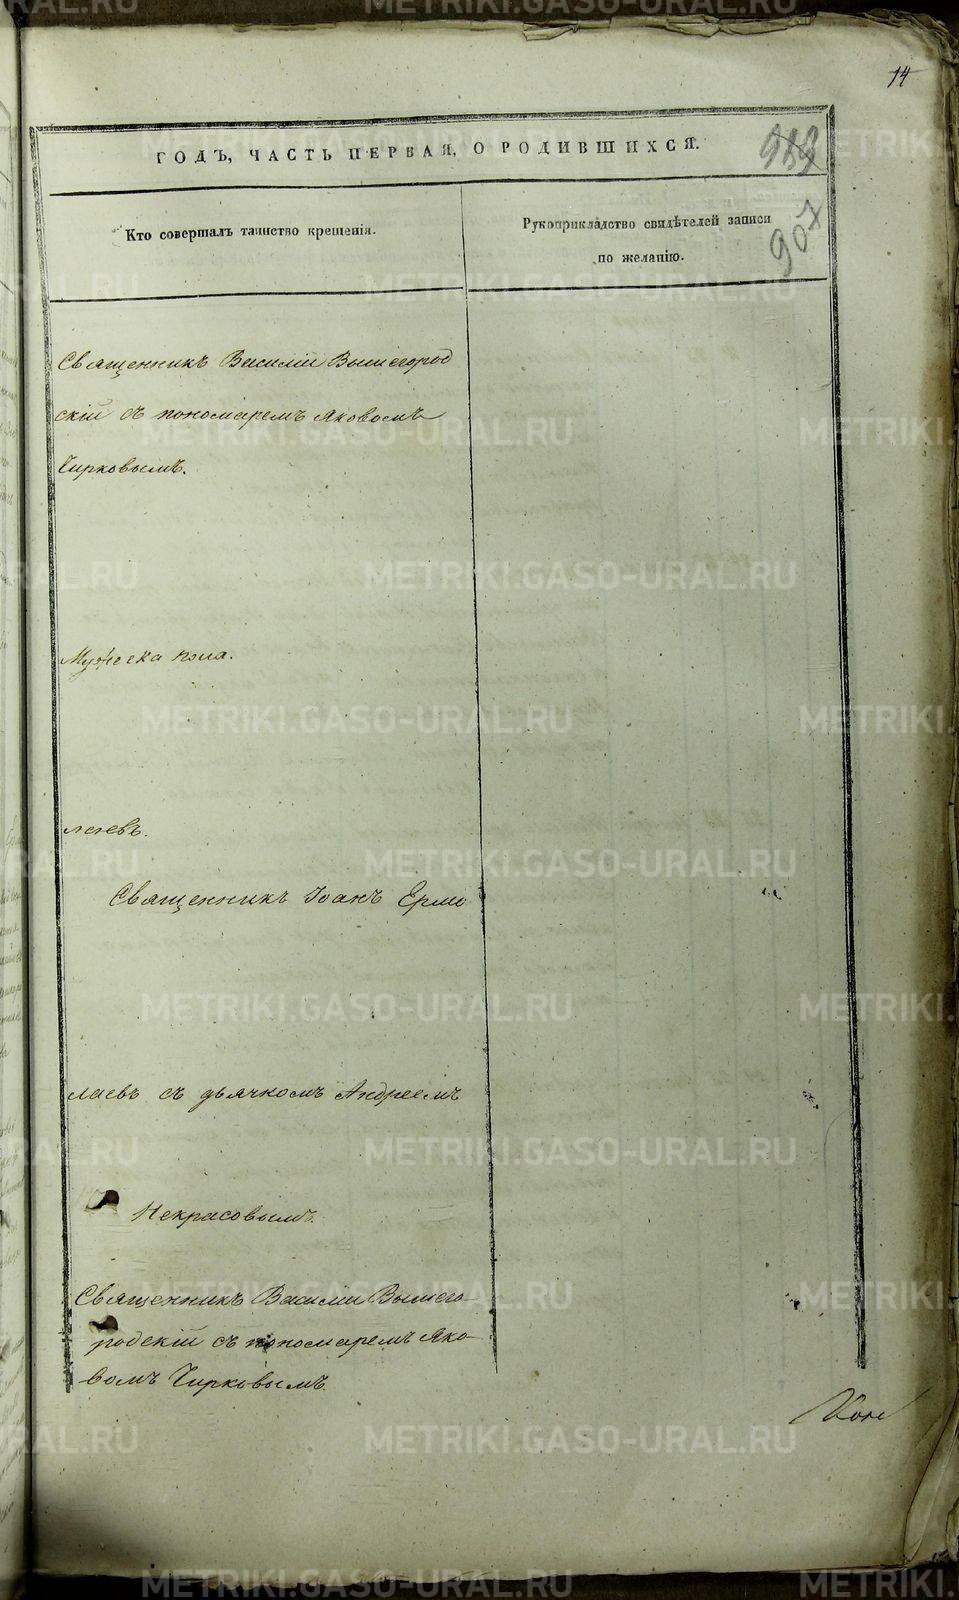 14
ГОДЪ, ЧАСТЬ ПЕРВАЯ, О РОДИВШИХСЯ.
907
Кто совершалъ таинство крещенія.
Рукоприкладство свидѣтелей записи
по желанію.
Священникъ Василій Вышегород
скій съ пономаремъ Яковомъ
Чирковымъ.
Мужеска пола.
лаевъ.
Священникъ Іоанъ Ермо
лаевъ съ дьячкомъ Андреемъ
Некрасовымъ.
Священникъ Василій Вышего
родскій съ пономаремъ Яко-
вомъ Чирковымъ.
METRIKI.GASO-URAL.RU